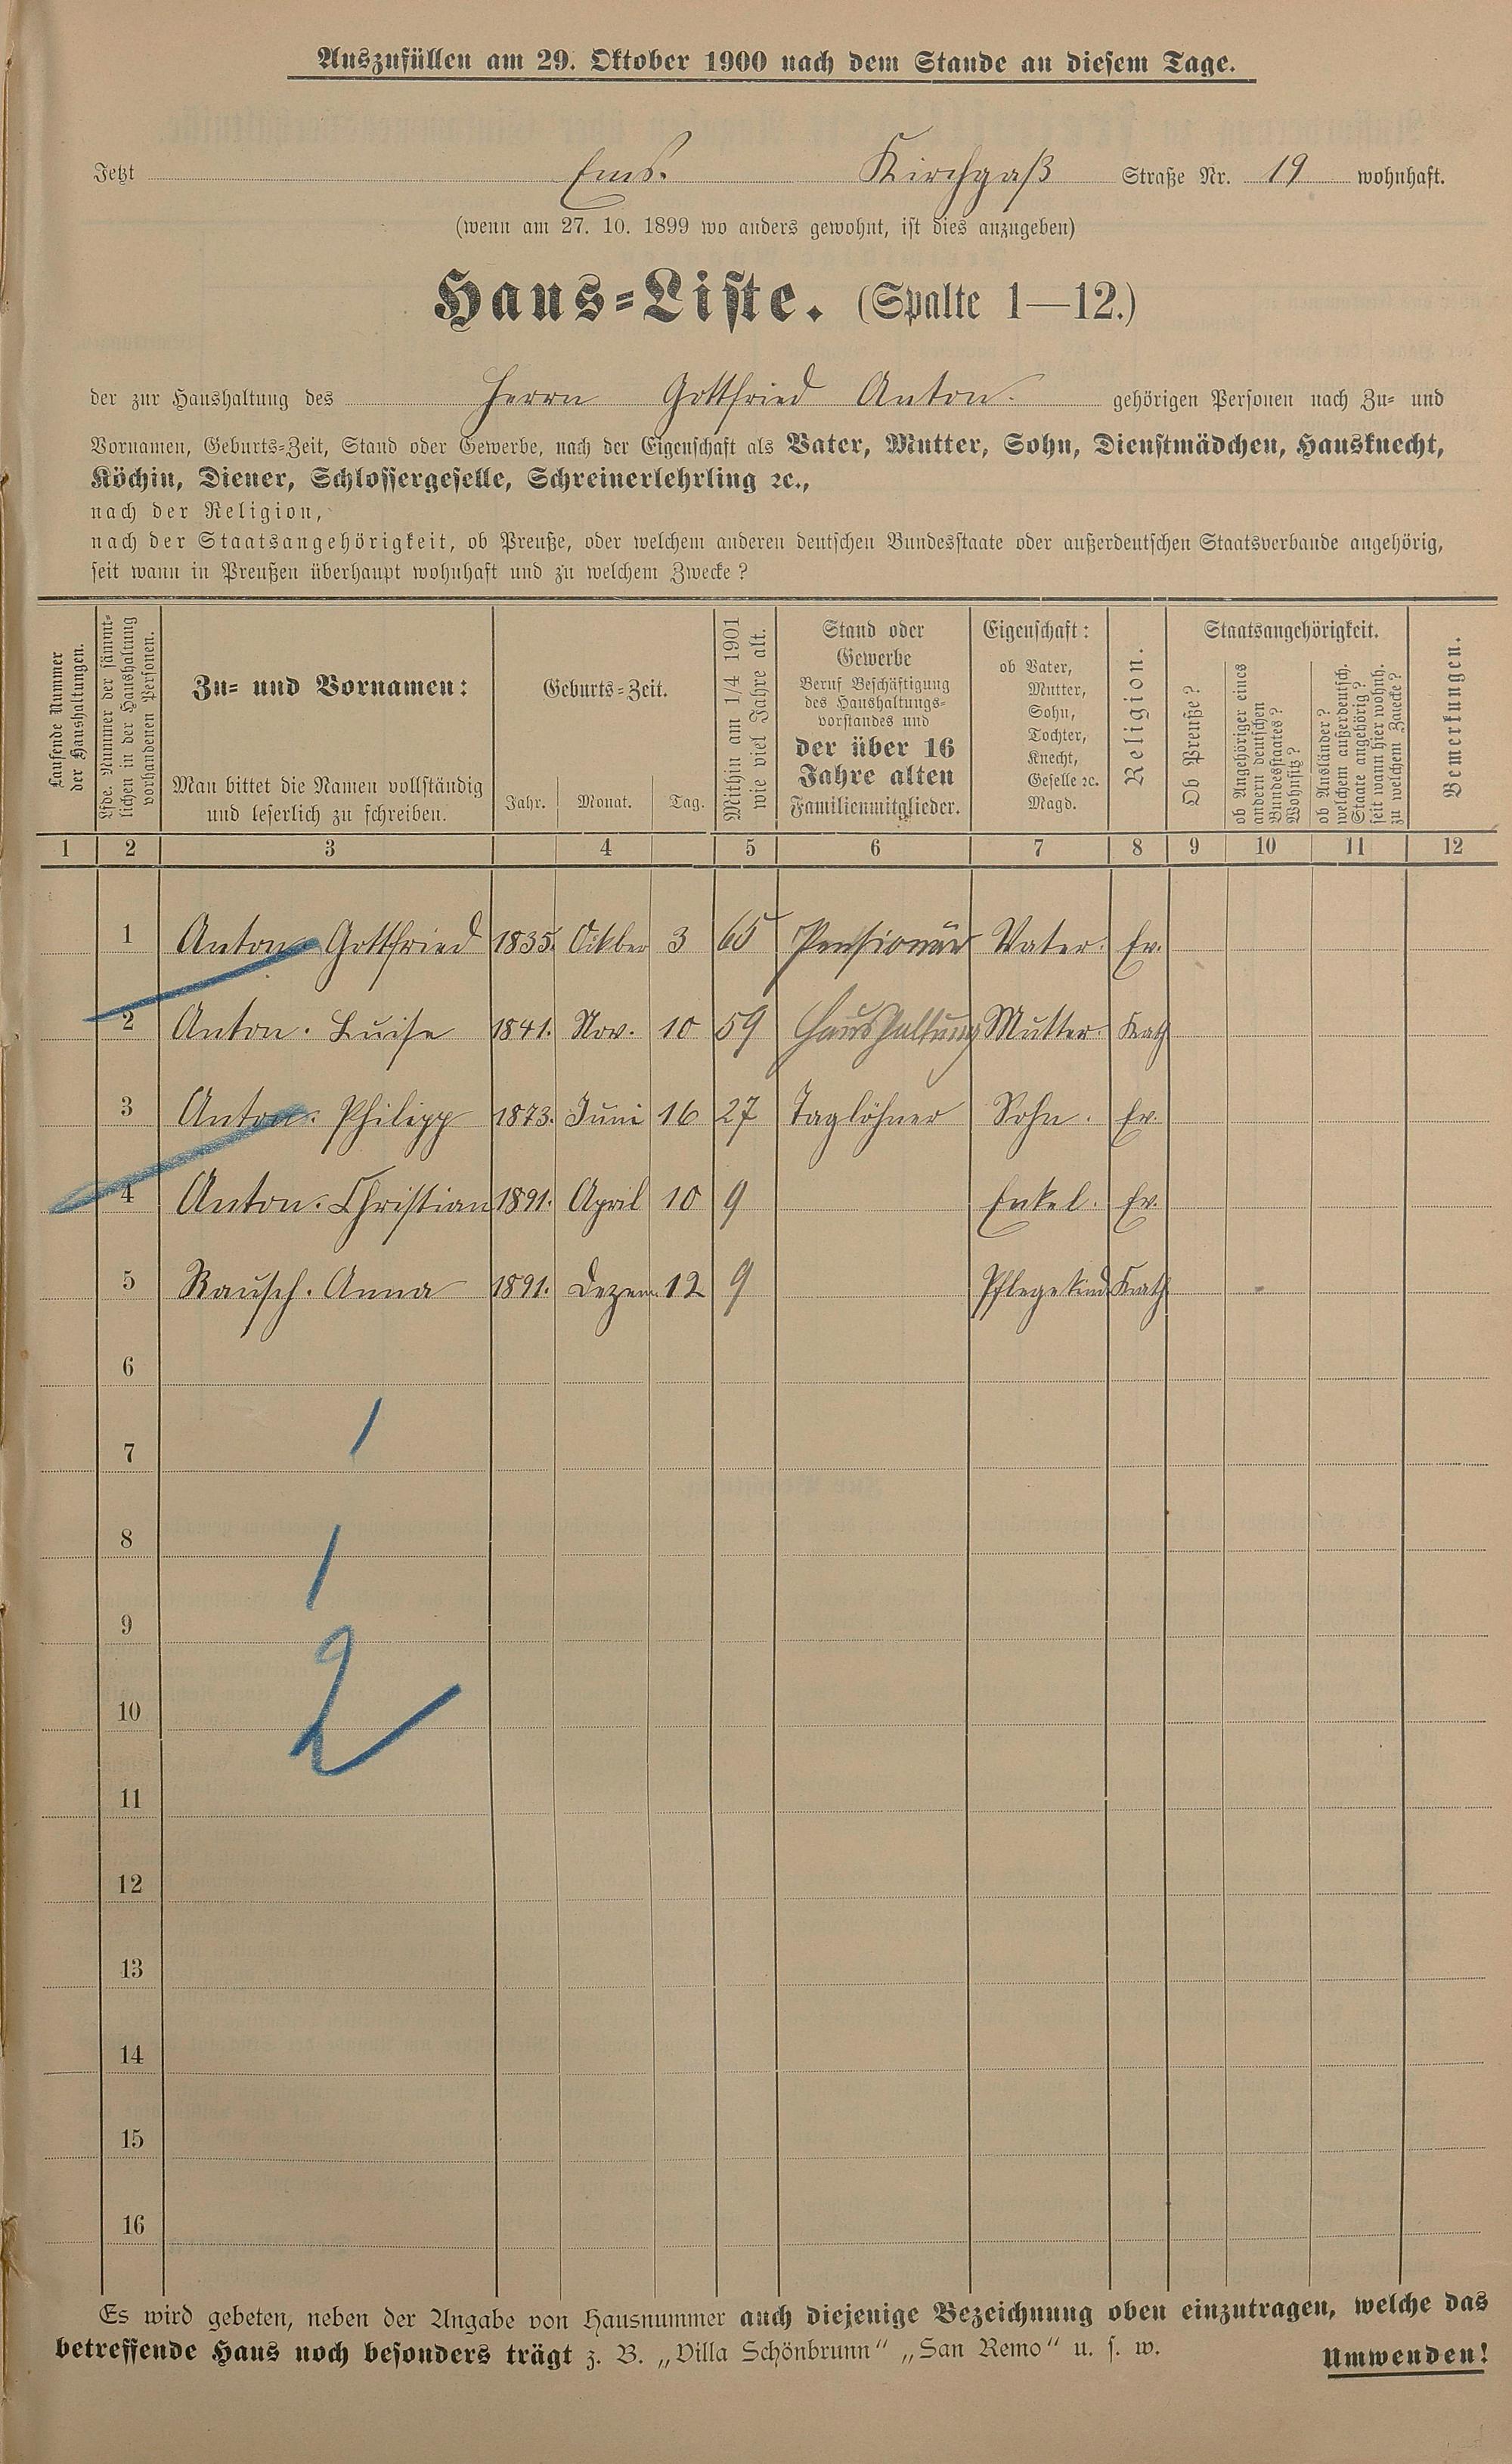 Auszufüllen am 29. Oktober 1900 nach dem Stande an diesem Tage.
Jetzt Ems. Kirchgaß Straße Nr. 19 wohnhaft.
(wenn am 27. 10. 1899 wo anders gewohnt, ist dies anzugeben)
Haus-Liste. (Spalte 1—12.)
der zur Haushaltung des Herrn Gottfried Anton. gehörigen Personen nach Zu- und
Vornamen, Geburts-Zeit, Stand oder Gewerbe, nach der Eigenschaft als Vater, Mutter, Sohn, Dienstmädchen, Hausknecht,
Köchin, Diener, Schlossergeselle, Schreinerlehrling ꝛc.,
nach der Religion,
nach der Staatsangehörigkeit, ob Preuße, oder welchem anderen deutschen Bundesstaate oder außerdeutschen Staatsverbande angehörig,
seit wann in Preußen überhaupt wohnhaft und zu welchem Zwecke?
Laufende Nummer
der Haushaltungen.
Lfde. Nummer der sämmt-
lichen in der Haushaltung
vorhandenen Personen.
Zu- und Vornamen:
Man bittet die Namen vollständig
und leserlich zu schreiben.
Geburts-Zeit.
Jahr. Monat. Tag.
Mithin am 1/4 1901
wie viel Jahre alt.
Stand oder
Gewerbe
Beruf Beschäftigung
des Haushaltungs-
vorstandes und
der über 16
Jahre alten
Familienmitglieder.
Eigenschaft:
ob Vater,
Mutter,
Sohn,
Tochter,
Knecht,
Geselle ꝛc.
Magd.
Religion.
Staatsangehörigkeit.
Ob Preuße?
ob Angehöriger eines
andern deutschen
Bundesstaates?
Wohnsitz?
ob Ausländer?
welchem außerdeutsch.
Staate angehörig?
seit wann hier wohnh.
zu welchem Zwecke?
Bemerkungen.
1 2 3 4 5 6 7 8 9 10 11 12
1 Anton. Gottfried 1835. Oktber 3 65 Pensionär Vater. Ev.
2 Anton. Luise 1841. Nov. 10 59 Haushaltung Mutter. Kath
3 Anton. Philipp 1873. Juni 16 27 Taglöhner Sohn. Ev.
4 Anton. Christian 1891. April 10 9 Enkel. Ev.
5 Rausch. Anna 1891. Dezem. 12 9 Pflegekind Kath
6
7
1
8
1
9
2
10
11
12
13
14
15
16
Es wird gebeten, neben der Angabe von Hausnummer auch diejenige Bezeichnung oben einzutragen, welche das
betreffende Haus noch besonders trägt z. B. „Villa Schönbrunn" „San Remo" u. s. w.
Umwenden!